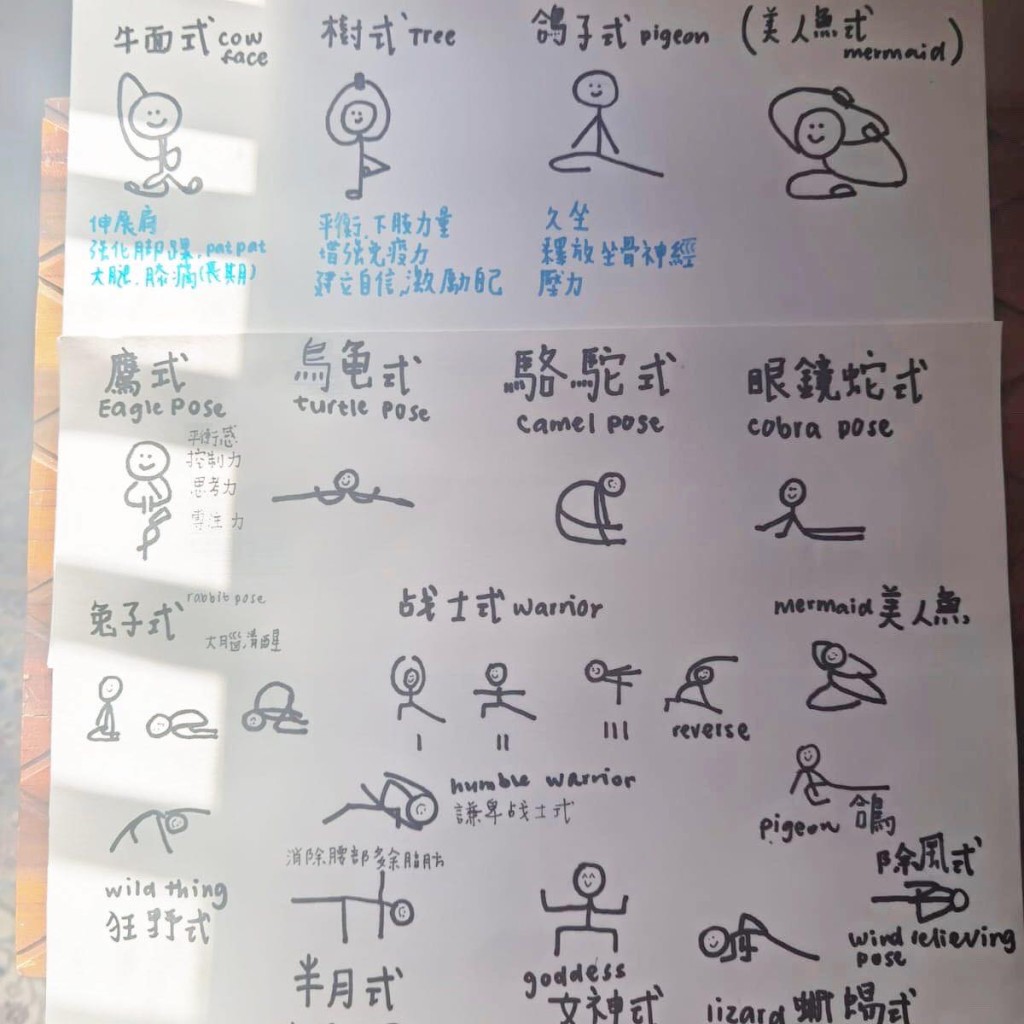 牛面式 cow face
樹式 Tree
鴿子式 pigeon
(美人魚式 mermaid)
伸展肩
强化脚踝,pat pat
大腿.膝痛(長期)
平衡.下肢力量
增强免疫力
建立自信,激勵自己
久坐
釋放坐骨神經
壓力
鷹式
Eagle Pose
平衡感
控制力
思考力
專注力
烏龜式
turtle pose
駱駝式
camel pose
眼鏡蛇式
cobra pose
兔子式 rabbit pose
大腦清醒
战士式 warrior
I
II
III
reverse
mermaid 美人魚
humble warrior
謙卑战士式
pigeon 鴿
wild thing
狂野式
消除腰部多余脂肪
半月式
goddess
女神式
lizard 蜥蜴式
除風式
wind relieving
pose